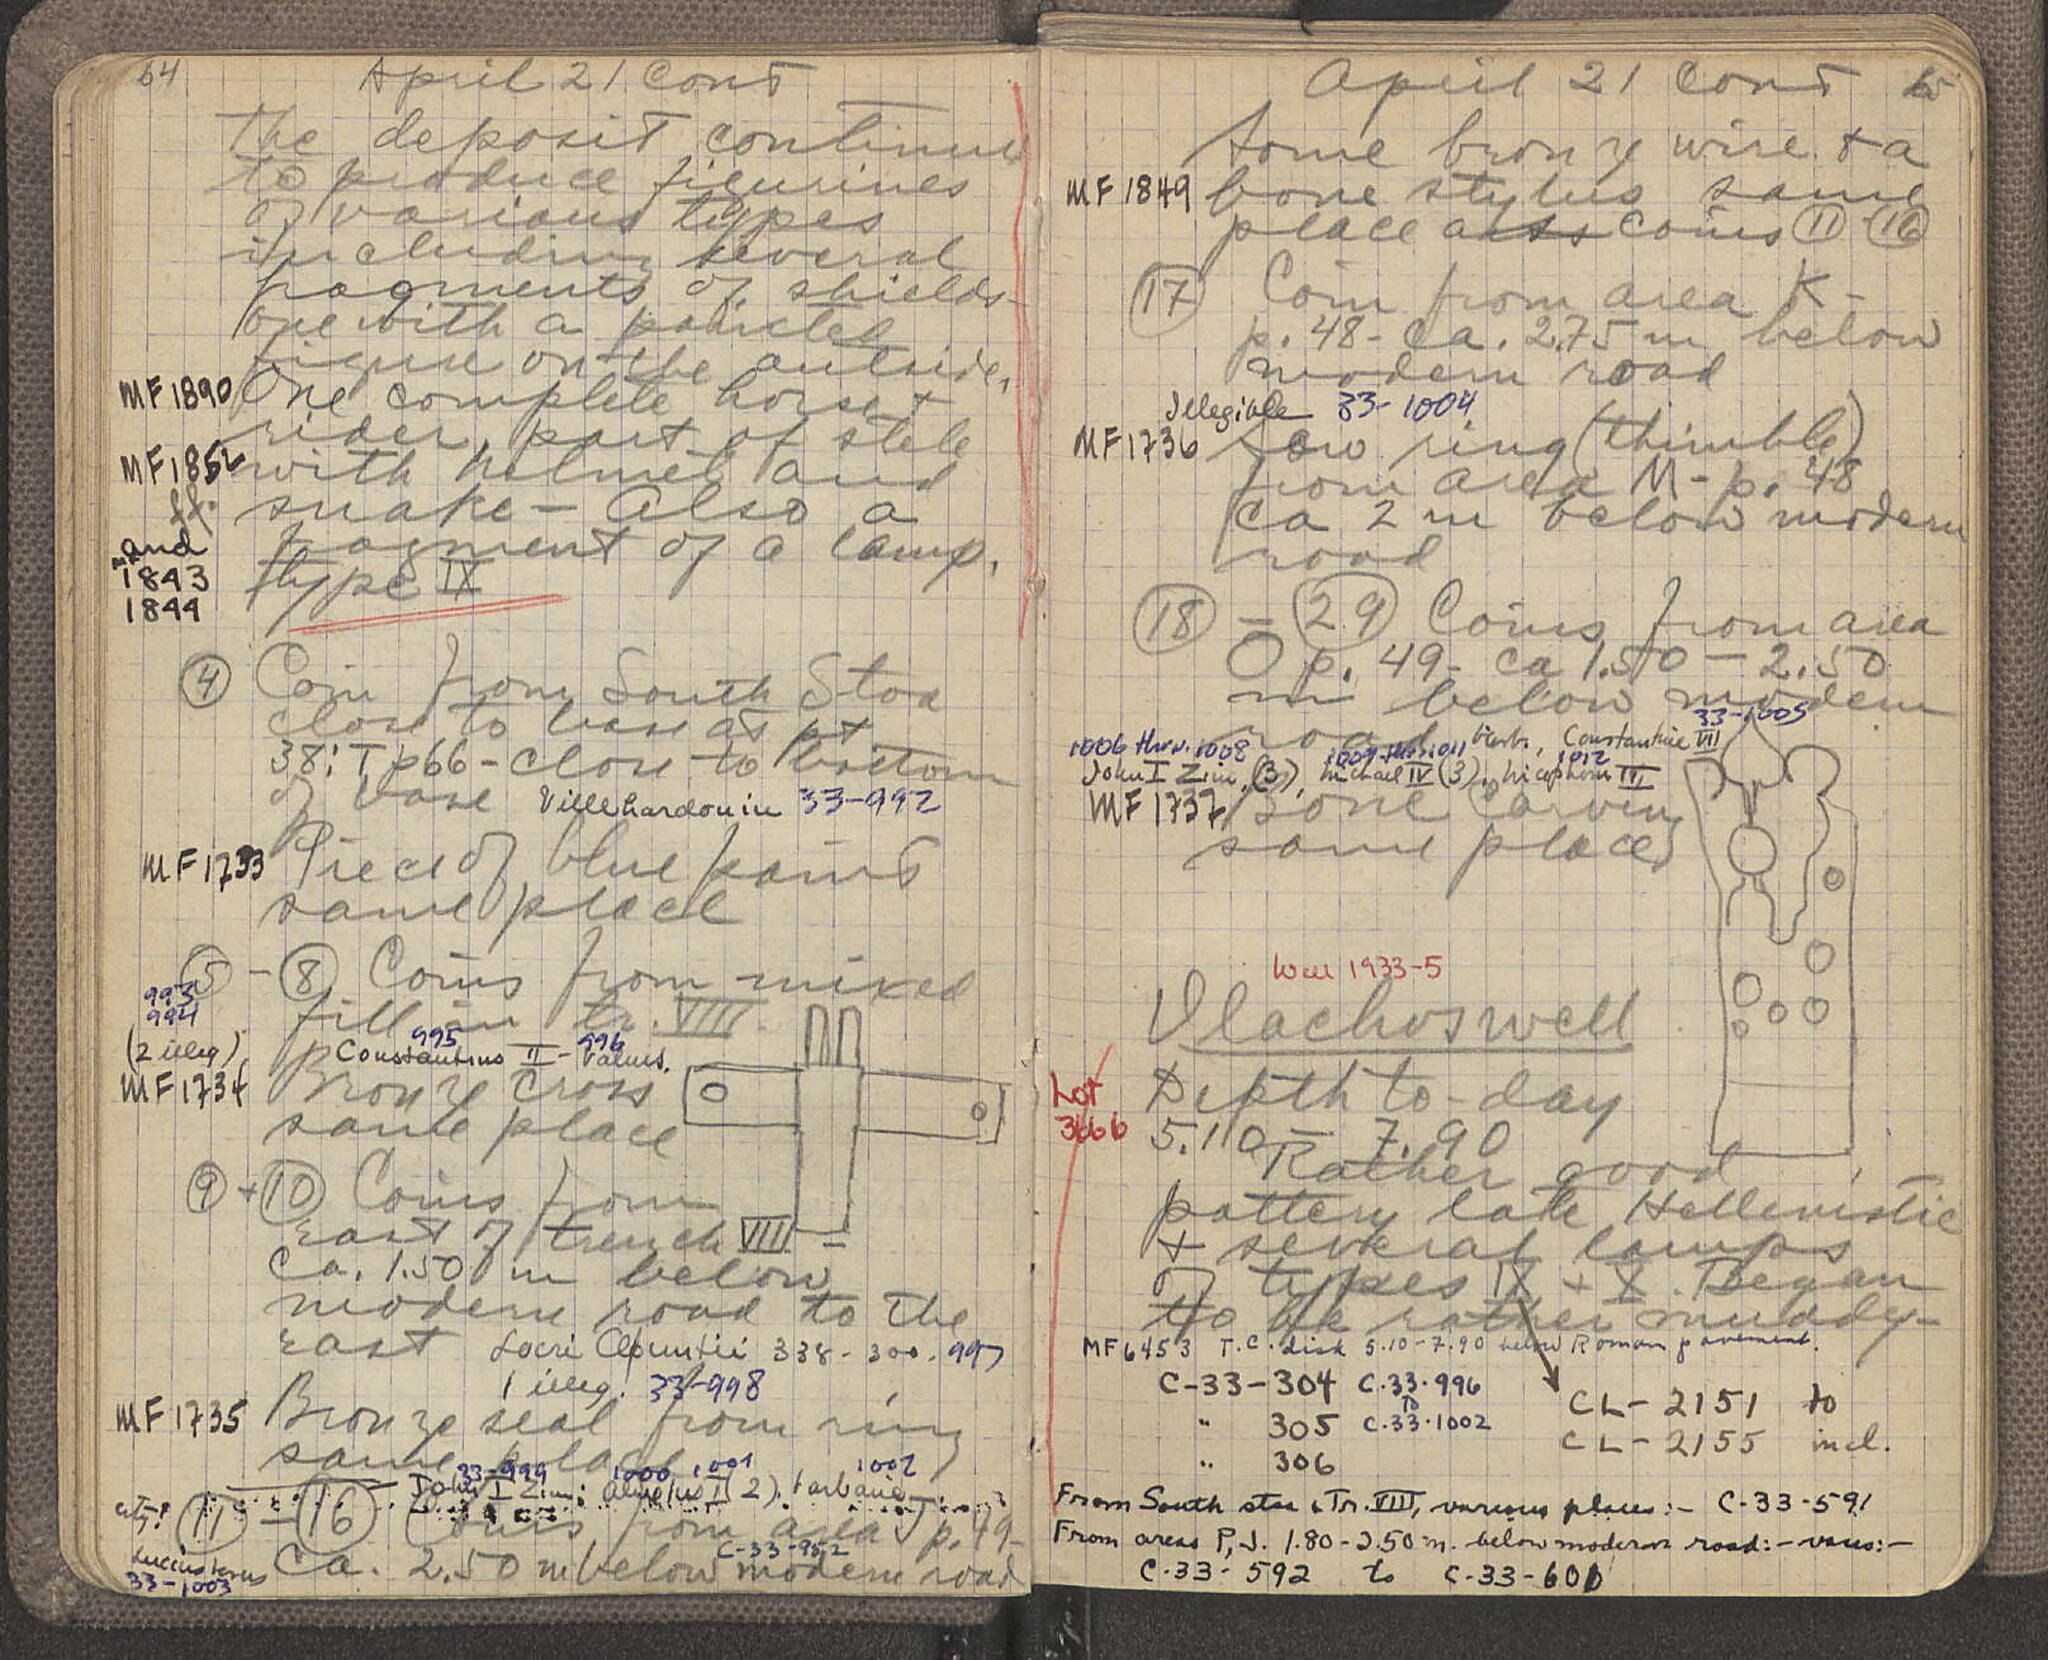 64
April 21 Cont
The deposit continues
to produce figurines
of various types
including several
fragments of shields -
one with a painted
figure on the outside,
MF 1890 One complete horse +
rider, part of stele
MF 1852 with helmet and
ff. snake - Also a
and fragment of a lamp,
1843 type IX
1844
④ Coin from South Stoa
close to base as pt
38: T p66 - close to bottom
of base Villehardouin 33-992
MF 1733 Piece of blue paint
same place
⑤ - ⑧ Coins from mixed
993
994 fill in tr. VIII.
(2 illeg) 995 996
Constantius II - Valens.
MF 1734 Bronze cross
same place
⑨ + ⑩ Coins from
east of trench VIII -
Ca. 1.50 m below
modern road to the
east Locri Opuntii 338-300. 997
1 illeg. 33-998
MF 1735 Bronze seal from ring
same place
33-999 1000 1001 1002
John I Zim;
⑪ - ⑯ Coins from area J p. 49 -
C-33-952
Ca. 2.50 m below modern road
33-1003
April 21 Cont 65
Some bronze wire + a
MF 1849 bone stylus same
place as coins ⑪ - ⑯
⑰ Coin from area K -
p. 48 - Ca. 2.75 m below
modern road
Illegible 33-1004
MF 1736 Sew ring (thimble)
from area M - p. 48
Ca 2 m below modern
road
⑱ - ㉙ Coins from area
O p. 49 - ca 1.50 - 2.50
m below modern
road 33-1005
Constantine VII
1006 thru. 1008 1009 thru 1011 1012
John I Zim. (3), Michael IV (3), Nicephorus III,
MF 1737 Bone carving
same place
Well 1933-5
Vlachos well
Lot Depth to-day
3666 5.10 - 7.90
Rather good
pottery late Hellenistic
+ several lamps
of types IX + X. Began
to be rather muddy -
MF 6453 T.C. disk 5.10-7.90 below Roman pavement.
C-33-304 C.33.996
to
" 305 C.33.1002
" 306
CL - 2151 to
CL - 2155 incl.
From South stoa & Tr. VIII, various places:- C-33-591
From areas P, J. 1.80-2.50 m. below modern road:- vases:-
C-33-592 to C-33-600